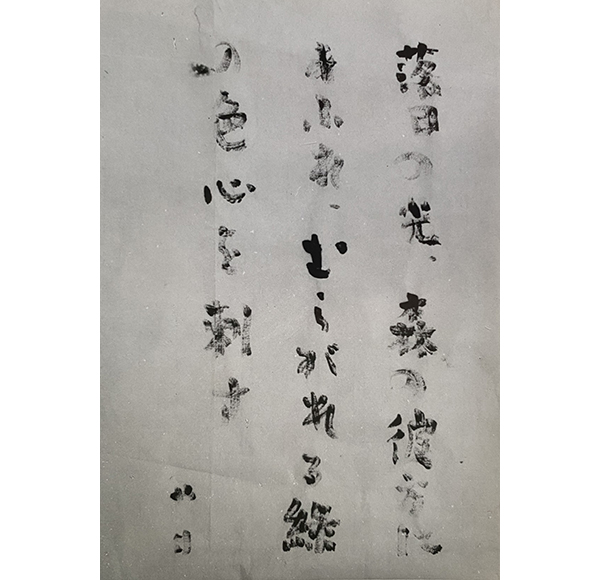 落日の光、森の彼方に
あふれ、むらがれる緑
の色心を刺す